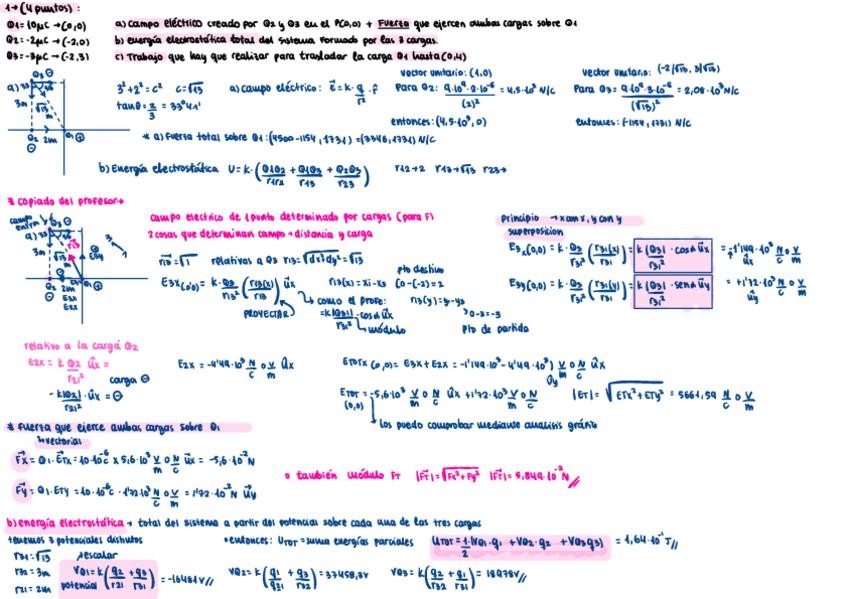 1→(4 puntos):
Q1=10μC→(0,0) a) campo eléctrico creado por Q2 y Q3 en el P(0,0) + Fuerza que ejercen ambas cargas sobre Q1
Q2=-2μC→(-2,0) b) energía electrostática total del sistema formado por las 3 cargas.
Q3=-3μC→(-2,3) c) Trabajo que hay que realizar para trasladar la carga Q1 hasta (0,4)
a) Q3 ⊖ 3m √13 m Q2 2m Q1 ⊕
3²+2²=c² c=√13
tanθ=2/3 = 33º41'
a) campo eléctrico: E=k·q/r²·r
vector unitario: (1,0)
Para Q2: 9·10⁹·2·10⁻⁶/(2)² = 4,5·10³ N/C
entonces: (4,5·10³, 0)
vector unitario: (-2/√13, 3/√13)
Para Q3= 9·10⁹·3·10⁻⁶/(√13)² = 2,08·10³ N/C
entonces: (-1154, 1731) N/C
* a) Fuerza total sobre Q1: (4500-1154, 1731) = (3346, 1731) N/C
b) Energía electrostática U=k·(Q1Q2/r12 + Q1Q3/r13 + Q2Q3/r23) r12→2 r13→√13 r23→
* copiado del profesor→
campo entra
a) Q3 ⊖ 3m Q2 2m Q1 E3x E2x E3y
campo electrico de 1 punto determinado por cargas (para F)
2 cosas que determinan campo→distancia y carga
relativos a Q3 r13=√dx²+dy²=√13
E3x(0,0)= k·Q3/r13² (r13(x)/r13) ûx
PROYECTAR
como el profe:
=k|Q3|/r31²·cosα ûx
módulo
pto destino
r13(x)=xi-x3 (0-(-2)=2
r13(y)=y-y3
0-3=-3
pto de partida
Principio superposición →x con x, y con y
E3x(0,0)=k·Q3/r31² (r31(x)/r31)= k|Q3|/r31²·cosα ûx = -1'149·10³ N/C o V/m ûx
E3y(0,0)=k·Q3/r31² (r31(y)/r31)= k|Q3|/r31²·senα ûy = +1'72·10³ N/C o V/m ûy
relativo a la carga Q2
E2x = k Q2/r21² ûx =
carga ⊖
-k|Q2|/r21²·ûx=⊖
E2x = -4'49·10³ N/C o V/m ûx
ETOTx (0,0)= E3x+E2x = -1'149·10³-4'49·10³) V/m o N/C ûx
ETOT (0,0) =-5,6·10³ N/C ûx +1'72·10³ V/m o N/C ûy
|ET|= √ETx²+ETy² = 5661,59 N/C o V/m
los puedo comprobar mediante analisis gráfico
* Fuerza que ejerce ambas cargas sobre Q1
vectorial
Fx=Q1·ETx=10·10⁻⁶C × 5,6·10³ V/m o N/C ûx = -5,6·10⁻² N
Fy=Q1·ETy=10·10⁻⁶·1'72·10³ N/C o V/m = 1'72·10⁻² N ûy
o también módulo FT |FT|=√Fx²+Fy² |FT|=5,849·10⁻² N//
b) energía electrostática→ total del sistema a partir del potencial sobre cada una de las tres cargas
tenemos 3 potenciales distintos
•entonces: UTOT=suma energías parciales
UTOT=1/2 (VQ1·q1 + VQ2·q2 + VQ3q3) = 1,64·10⁻¹ J//
r31=√13
r32=3m
r21=2m
escalar
potencial VQ1=k(q2/r21 + q3/r31)=-16481V//
VQ2=k(q1/r21 + q3/r32)=37458,3V
VQ3=k(q2/r32 + q1/r31)=18978V//